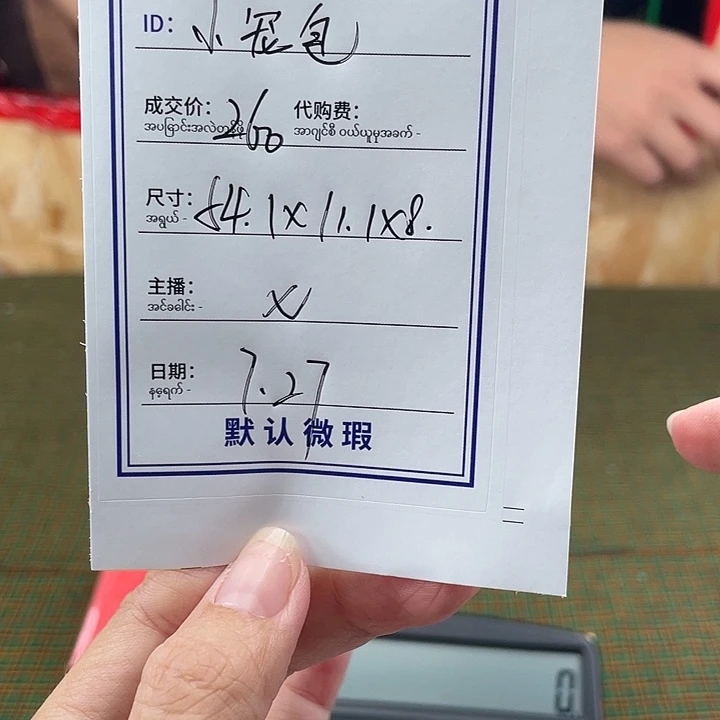 ID: 小冤包
成交价: 260 代购费:
အပပြောင်းအလဲတန်ဖိုး အာဂျင်စီ ဝယ်ယူမှုအခက် -
尺寸: 54.1X11.1X8.
အရွယ် -
主播: X
အင်ခေါင်း -
日期: 7.27
နေ့ရက် -
默认微瑕
0